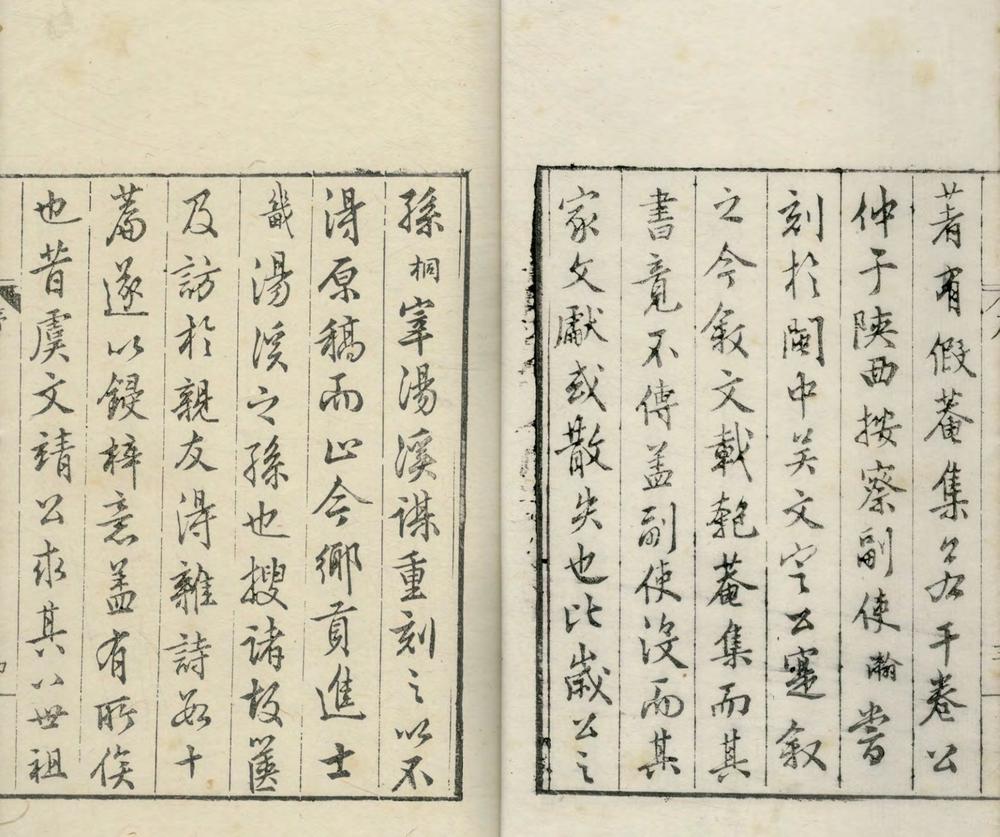 著有假菴集若干卷公
仲子陝西按察副使瀚嘗
刻於閩中吴文定公寔叙
之今叙文載匏菴集而其
書竟不傳盖副使没而其
家文獻或散失也比歲公之
孫桐宰湯溪謀重刻之以不
得原稿而止今鄉貢進士
畿湯溪之孫也搜諸故篋
及訪於親友得雜詩若十
篇遂以鋟梓意盖有所俟
也昔虞文靖公求其八世祖